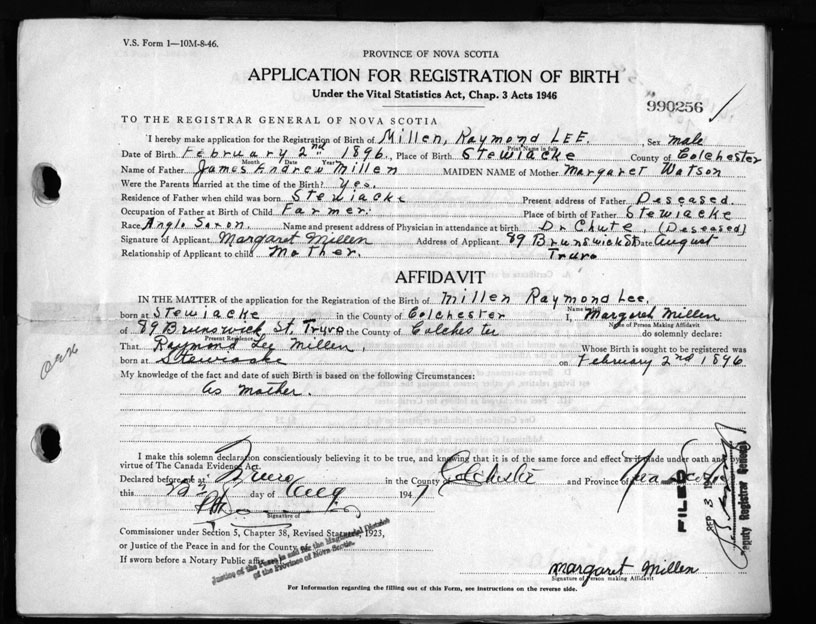 V.S. Form 1—10M-8-46.
PROVINCE OF NOVA SCOTIA
APPLICATION FOR REGISTRATION OF BIRTH
Under the Vital Statistics Act, Chap. 3 Acts 1946
990256
TO THE REGISTRAR GENERAL OF NOVA SCOTIA
I hereby make application for the Registration of Birth of Millen, Raymond LEE. Sex male
Print Name in full
Date of Birth February 2nd 1896. Place of Birth Stewiacke County of Colchester
Month Date Year
Name of Father James Andrew Millen MAIDEN NAME of Mother Margaret Watson
Were the Parents married at the time of the Birth? Yes.
Residence of Father when child was born Stewiacke Present address of Father Deseased.
Occupation of Father at Birth of Child Farmer. Place of birth of Father Stewiacke
Race Anglo Saxon Name and present address of Physician in attendance at birth Dr Chute, (Deseased)
Signature of Applicant Margaret Millen Address of Applicant 89 Brunswick St Date August
Relationship of Applicant to child Mother. Truro
AFFIDAVIT
IN THE MATTER of the application for the Registration of the Birth of Millen Raymond Lee.
Name in full
born at Stewiacke in the County of Colchester I, Margaret Millen
Name of Person Making Affidavit
of 89 Brunswick St. Truro the County of Colchester do solemnly declare:
Present Residence
That Raymond Lee Millen, Whose Birth is sought to be registered was
born at Stewiacke on February 2nd 1896
My knowledge of the fact and date of such Birth is based on the following Circumstances:
As mother.
I make this solemn declaration conscientiously believing it to be true, and knowing that it is of the same force and effect as if made under oath and by
virtue of The Canada Evidence Act.
Declared before me at Truro in the County of Colchester and Province of Nova Scotia
this day of Aug 1947
Signature of
Commissioner under Section 5, Chapter 38, Revised Statutes, 1923,
or Justice of the Peace in and for the County
If sworn before a Notary Public affix
Justice of the Peace in and for the Municipal District
of the Province of Nova Scotia.
FILED
SEP 3
Deputy Registrar General
Margaret Millen
Signature of Person making Affidavit
For Information regarding the filling out of this Form, see instructions on the reverse side.